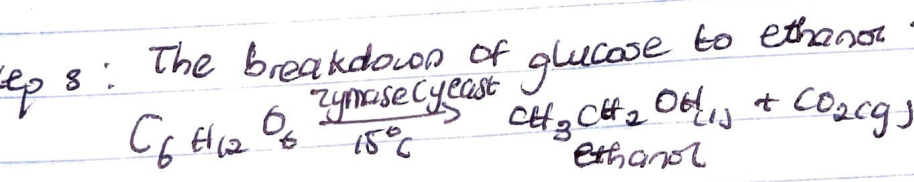 ep 8: The breakdown of glucose to ethanol
C6H12O6 zymase(yeast → 15°C CH3CH2OH(l) + CO2(g)
ethanol